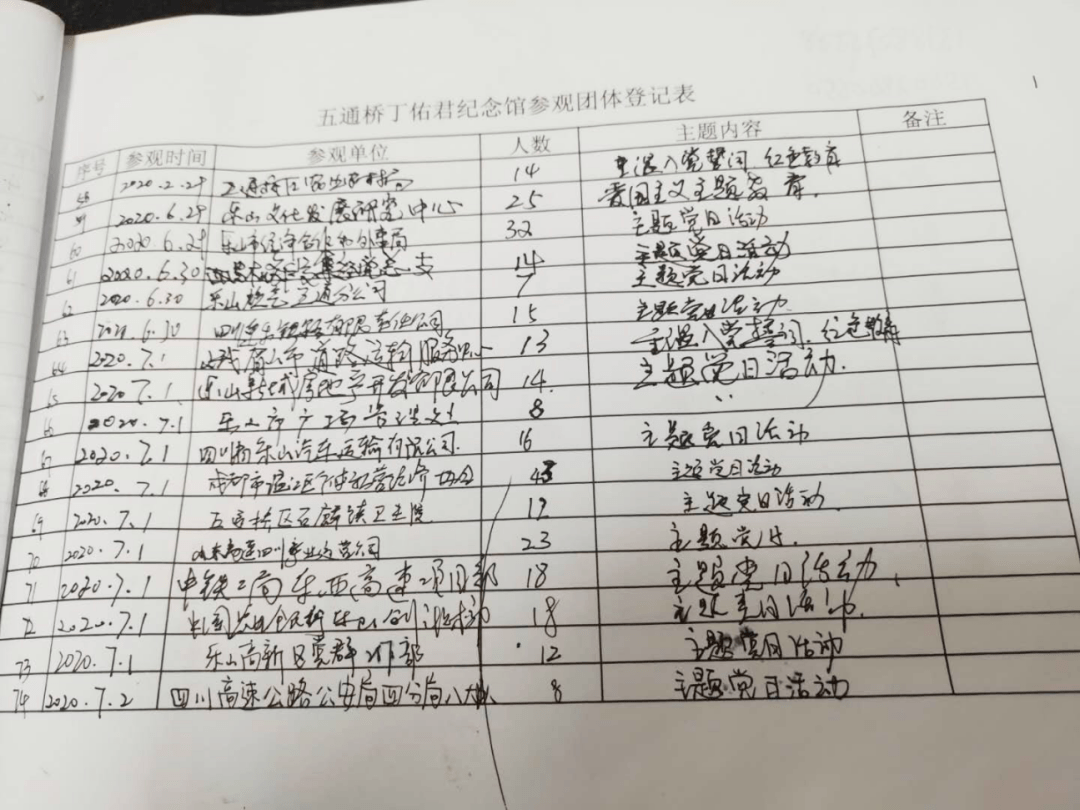 五通桥丁佑君纪念馆参观团体登记表
序号 参观时间 参观单位 人数 主题内容 备注
58 2020.2.29 14 重温入党誓词 红色教育
59 2020.6.29 乐山文化发展研究中心 25 爱国主义主题教育.
60 2020.6.29 乐山市经济合作和外事局 32 主题党日活动
61 2020.6.30 支 14 主题党日活动
62 2020.6.30 乐山 交通分公司 7 主题党日活动
63 2020.6.30 四川 有限责任公司 15 主题党日活动
64 2020.7.1 眉山市道路运输服务中心 13 重温入党誓词.红色教育
65 2020.7.1. 乐山 房地产开发有限公司 14. 主题党日活动.
66 2020.7.1 乐山市广场管理 8 ''
67 2020.7.1 四川 乐山汽车运输有限公司. 16 主题党日活动
68 2020.7.1 成都市温江区 43 主题党日活动
69 2020.7.1 五通桥区石麟镇卫生院 12 主题党日活动.
70 2020.7.1 四川 公司 23 主题党日.
71 2020.7.1 中铁二局乐西高速项目部 18 主题党日活动.
72 2020.7.1 中国 18 主题党日活动.
73 2020.7.1 乐山高新区党群工作部 12 主题党日活动
74 2020.7.2 四川高速公路公安局四分局八大队 8 主题党日活动